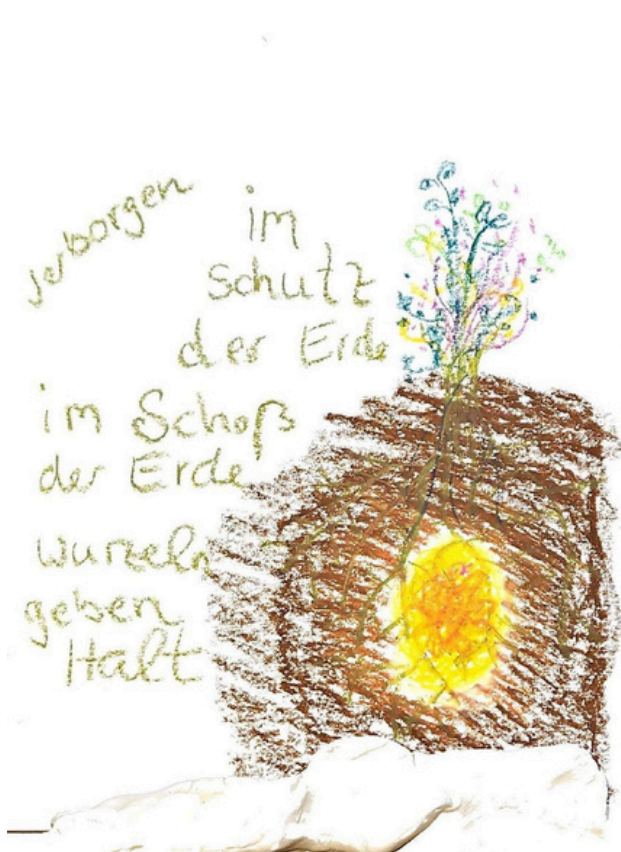 verborgen
im
schutz
der Erde
im Schoß
der Erde
wurzeln
geben
Halt